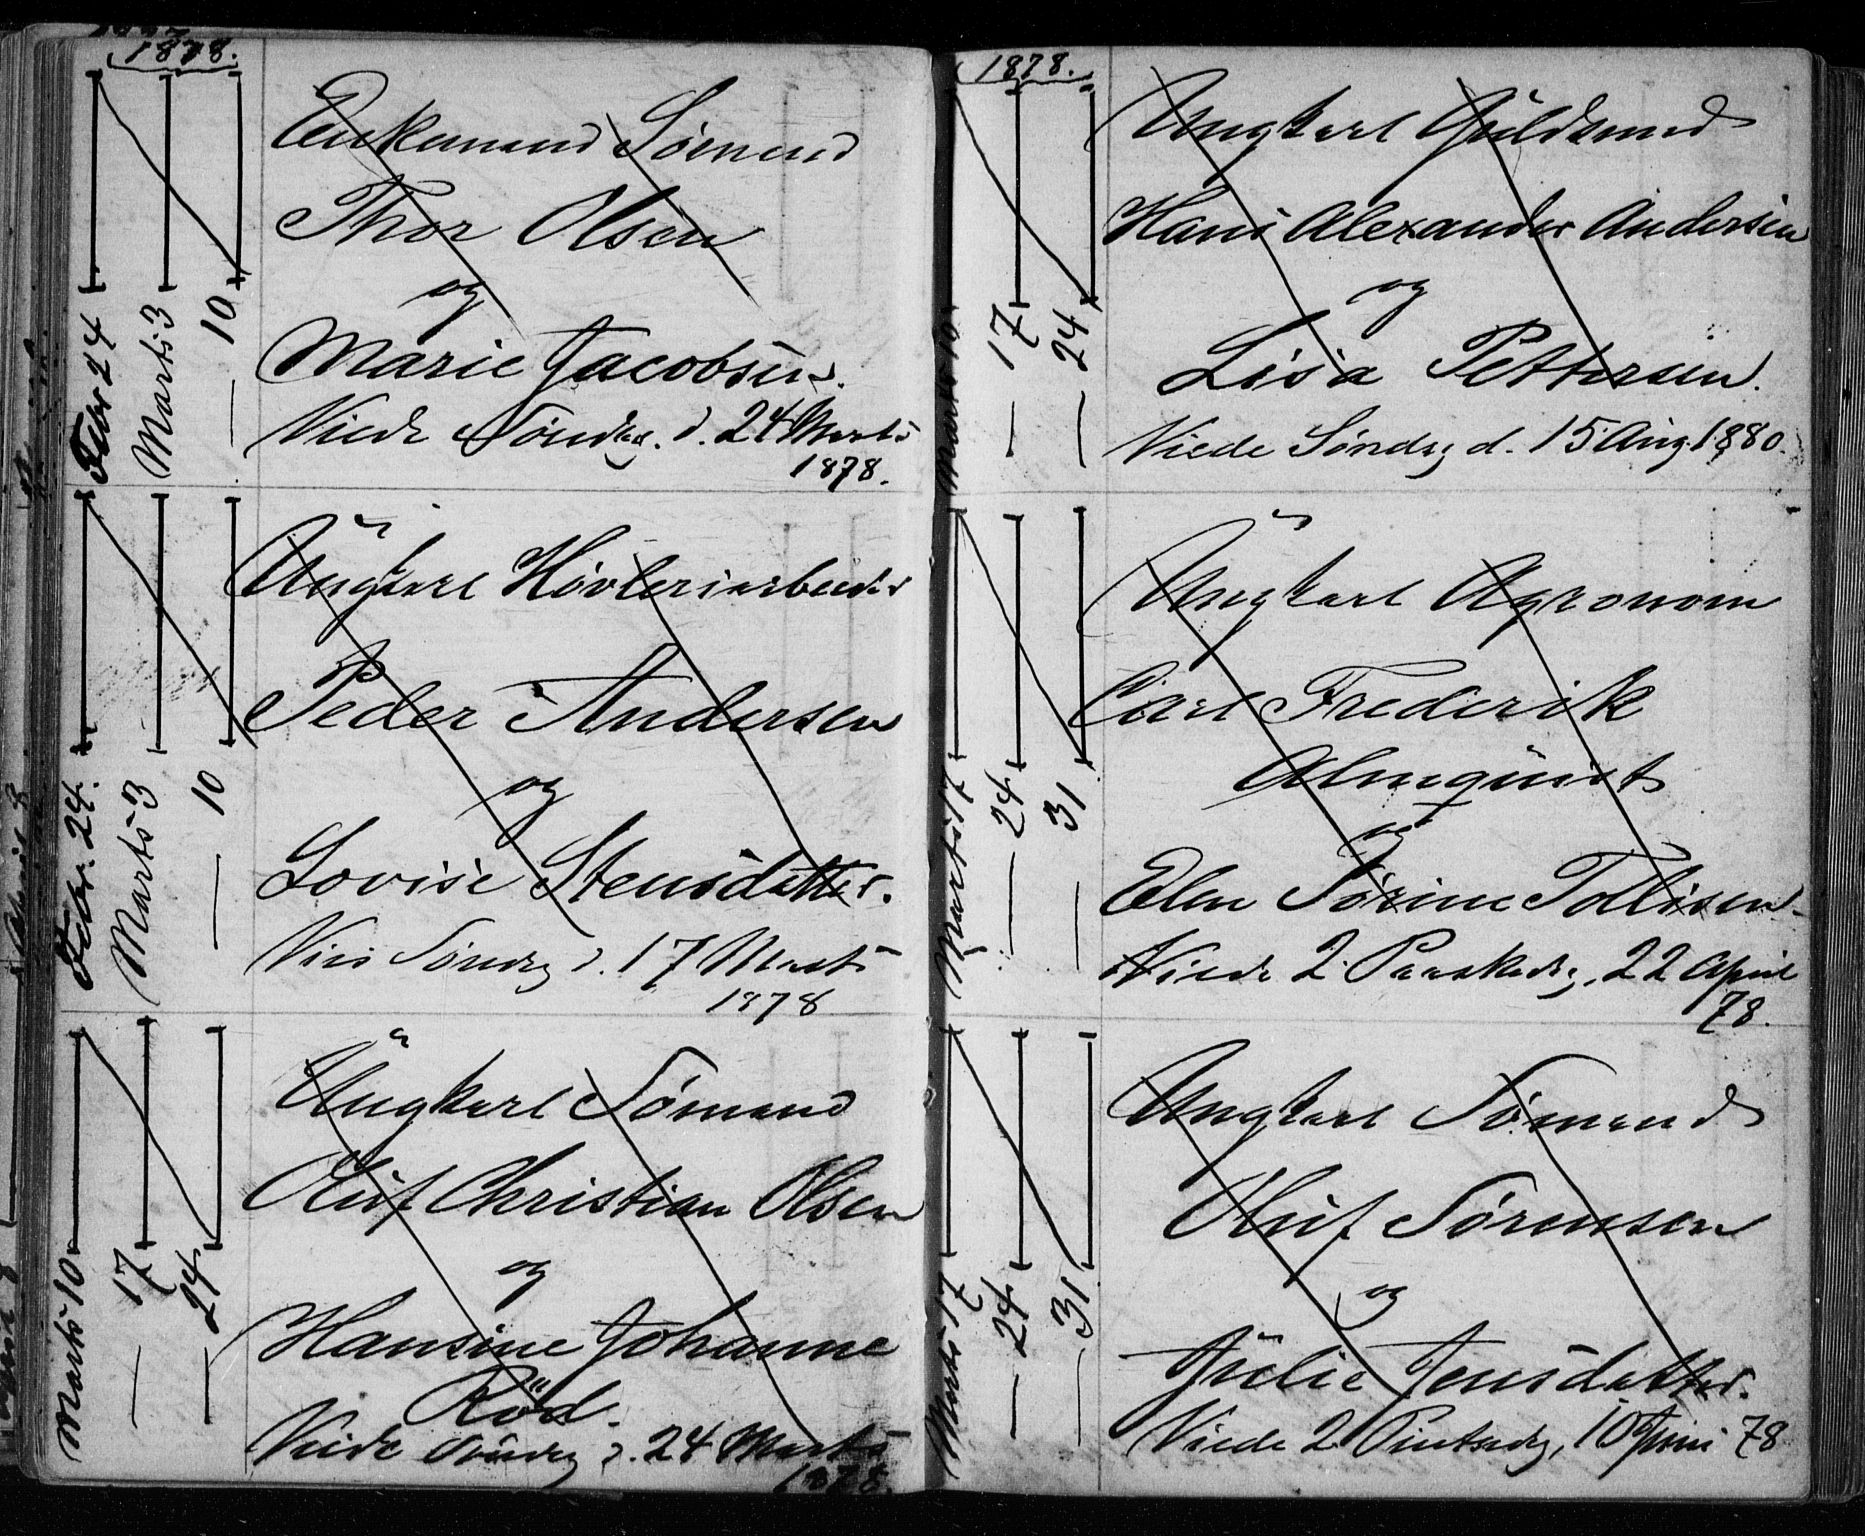 1878.
Febr 24
Marts 3
— 10
Enkemand Sømand
Thor Olsen
og
Marie Jacobsen.
Viede Søndag. d. 24 Marts
1878.
Febr. 24.
Marts 3
— 10
Ungkarl Høvleriarbeider
Peder Andersen
og
Lovise Stensdatter.
Viet Søndag d. 17 Marts
1878
Marts 10
— 17
— 24
Ungkarl Sømand
Oluf Christian Olsen
og
Hansine Johanne
Röd.
Viede Søndag d. 24 Marts
1878.
1878.
Marts 10
— 17
— 24
Ungkarl Guldsmed
Hans Alexander Andersen
og
Lisa Pettersen.
Viede Søndag d. 15 Aug 1880.
Marts 17
— 24
— 31
Ungkarl Agronom
Carl Frederik
Almquist
og
Elen Sørine Tollisen
Viede 2 Paaskedag, 22 April
78.
Marts 17
— 24
— 31
Ungkarl Sømand
Oluf Sørensen
og
Julie Jensdatter.
Viede 2 Pintsedag, 10 Juni 78